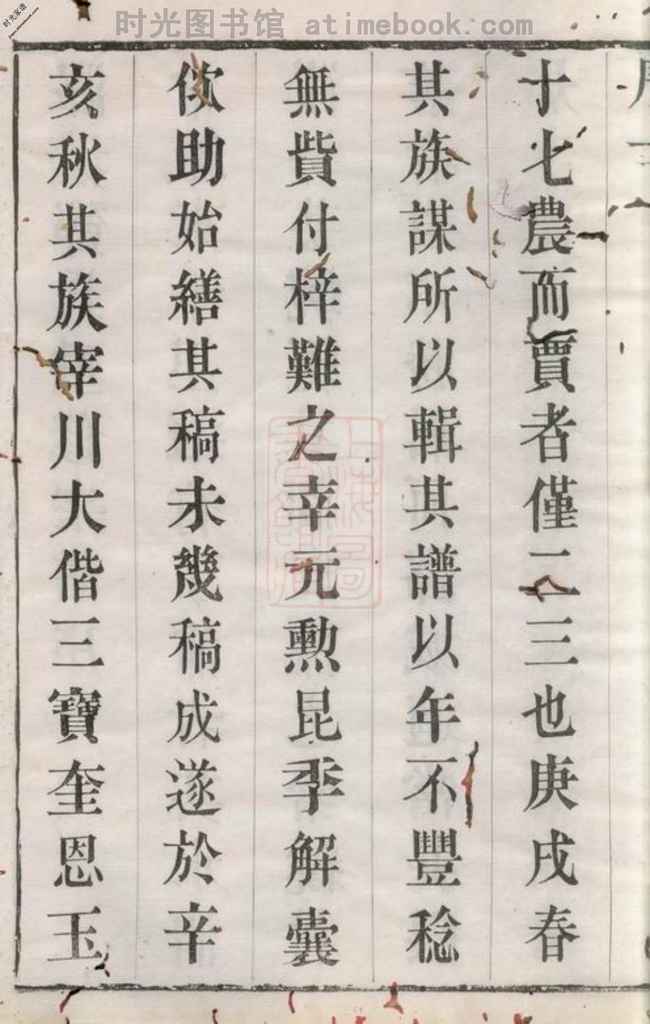 时光图书馆 - atimebook.com
时光家谱
十七農而賈者僅二三也庚戌春
其族謀所以輯其譜以年不豐稔
無貲付梓難之幸元勲昆季解囊
佽助始繕其稿未幾稿成遂於辛
亥秋其族宰川大偕三寶奎恩玉